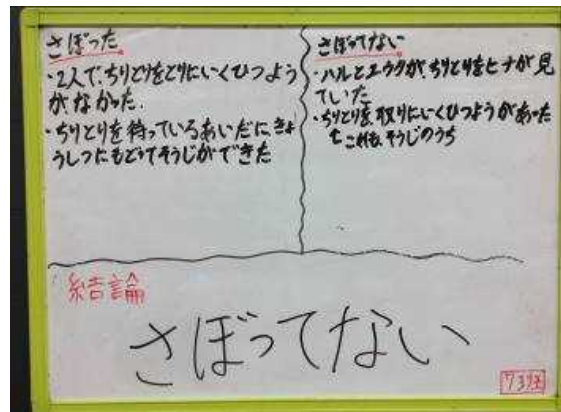 さぼった
・2人で、ちりとりをとりにいくひつよう
がなかった.
・ちりとりを待っているあいだにきょ
うしつにもどってそうじができた
さぼってない
・ハルとユウタが、ちりとりをヒナが見
ていた
・ちりとりを取りにいくひつようがあった
これも、そうじのうち
結論
さぼってない